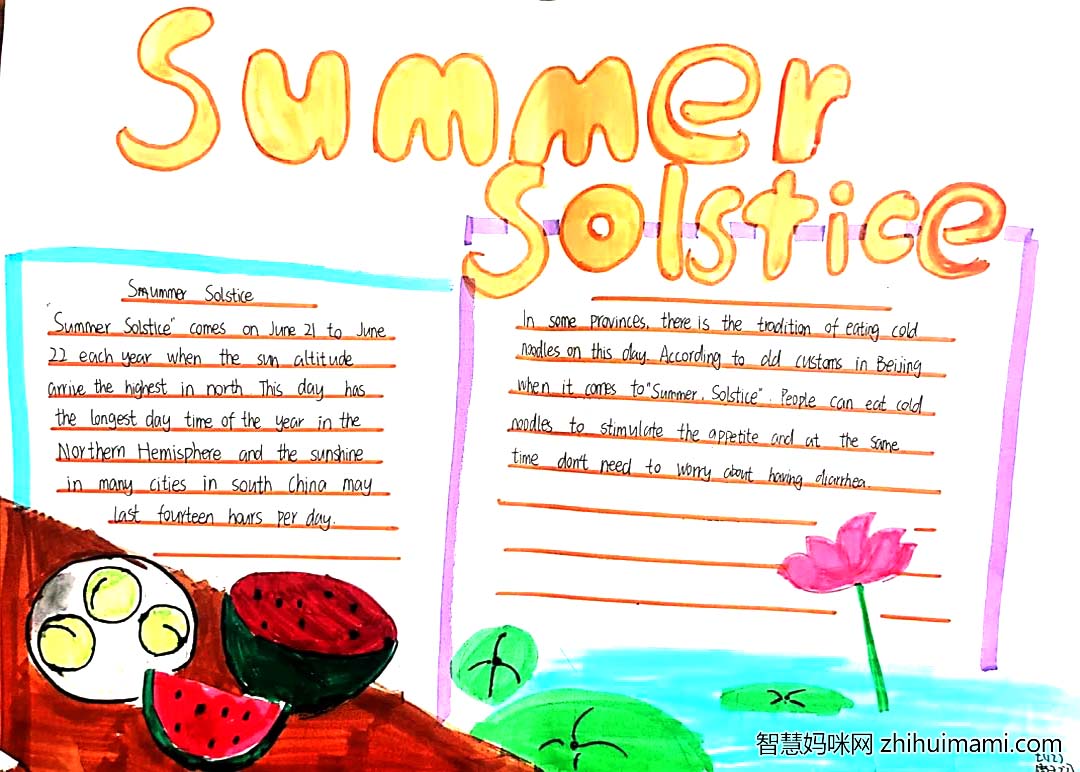 Summer
Solstice
Summer Solstice
Summer Solstice" comes on June 21 to June
22 each year when the sun altitude
arrive the highest in north This day has
the longest day time of the year in the
Northern Hemisphere and the sunshine
in many cities in south China may
last fourteen hours per day.
In some provinces, there is the tradition of eating cold
noodles on this day. According to old customs in Beijing
when it comes to "Summer. Solstice". People can eat cold
noodles to stimulate the appetite and at the same
time don't need to worry about having diarrhea.
智慧妈咪网 zhihuimami.com